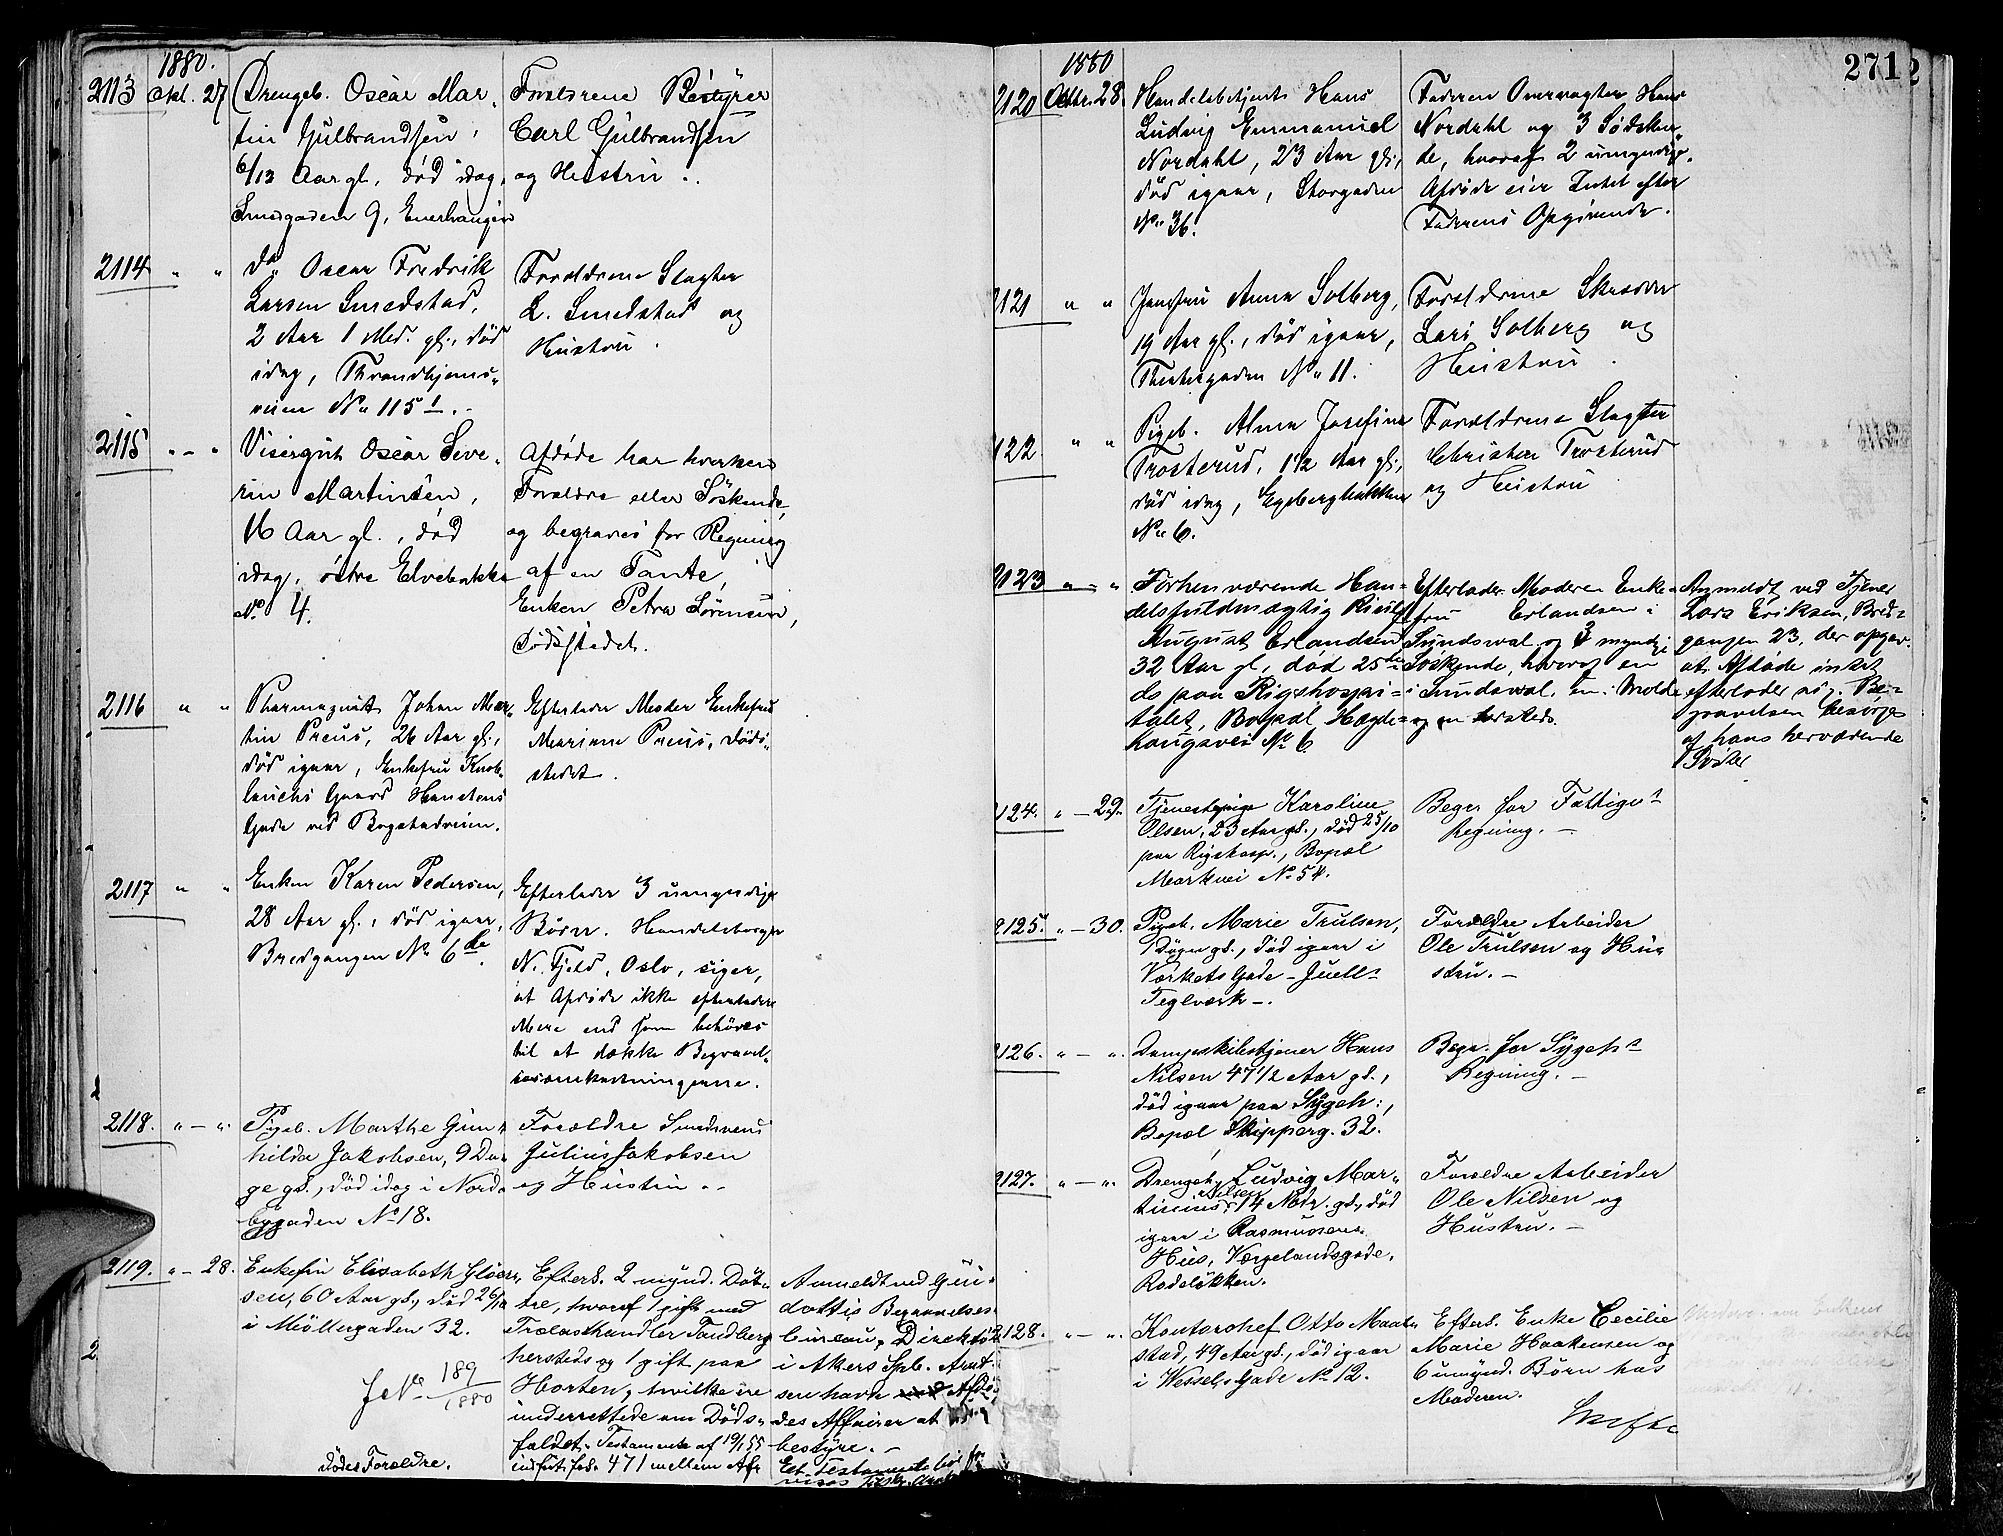 1880.
2113 Okt. 27 Drengeb. Oscar Mar-
tin Gulbrandsen,
6/12 Aar gl., död idag,
Smedgaden 9, Enerhaugen
Forældrene Bestyrer
Carl Gulbrandsen
og Hustru.
2114 " " do Oscar Fredrik
Larsen Smedstad,
2 Aar 1 Md. gl., död
idag, Throndhjems-
veien No 115 1.
Forældrene Slagter
L. Smedstad og
Hustru.
2115 " - " Visergut Oscar Seve-
rin Martinsen,
16 Aar gl., död
idag, östre Elvebakke
No 4.
Afdöde har hverken
Forældre eller Söskende,
og begraves for Regning
af en Tante,
Enken Petra Sörensen,
Dödsstedet.
2116 " " Pharmaceut Johan Mar-
tin Preus, 26 Aar gl.,
död igaar, Enkefru Knob-
lauchs Gaard Hansteens
Gade ved Bogstadveien.
Efterlader Moder Enkefru
Marianne Preus, Döds-
stedet.
2117 " " Enken Karen Pedersen,
28 Aar gl., död igaar,
Bredgangen No 6 de.
Efterlader 3 umyndige
Börn. Handelsborger
N. Fjeld, Oslo, siger,
at Afdöde ikke efterlader
Mere end som behöves
til at dække Begravel-
sesomkostningerne.
2118. " - " Pigeb. Marthe Gun-
hilda Jakobsen, 9 Da-
ge gl., död idag i Nord-
bygaden No 18.
Forældre Smedsvend
Julius Jakobsen
og Hustru.
2119. " - 28. Enkefru Elisabeth Gloer-
sen, 60 Aar gl., död 26/10
i Möllergaden 32.
J No 189/1880
Efterl. 2 mynd. Döt-
tre, hvoraf 1 gift med
Trælasthandler Tandberg
hersteds og 1 gift paa
Horten, hvilke ere
underrettede om Döds-
faldet. Testamente af 19/1 55
indfört fol. 471 mellem Afd
dödes Forældre.
Anmeldt ved Gun-
dottis Begravelses-
bureau. Direktör
i Akers Spb. Arnt-
sen havde Afdö-
des Affairer at
bestyre.
Et Testamente
1880
271
2120 Oktbr. 28. Handelsbetjent Hans
Ludvig Emmanuel
Nordahl, 23 Aar gl.,
död igaar, Storgaden
No 36.
Faderen Overvagter Hans
Nordahl og 3 Södsken-
de, hvoraf 2 umyndige.
Afdöde eier Intet efter
Faderens Opgivende.
2121 " " Jomfru Anna Solberg,
19 Aar gl., död igaar,
Theatergaden No 11.
Forældrene Skræder
Lars Solberg og
Hustru.
2122 " " Pigeb. Alma Josefine
Trosterud, 1 1/2 Aar gl.,
död idag, Egebergbakken
No 6.
Forældrene Slagter
Christen Trosterud
og Hustru
2123 " - " Forhenværende Han-
delsfuldmægtig
August Erlandsen
32 Aar gl., död 25de
ds paa Rigshospi-
talet, Bopæl Hægde-
haugsvei No 6.
Efterlader Moderen Enke-
fru Erlandsen i
Sundsval og 3 myndige
Söskende, hvoraf en
i Sundsval, en i Molde
og en hersteds.
Anmeldt ved Tjener
Lars Eriksen, Bred-
gangen 23, der opgav
at Afdöde intet
efterlader sig. Be-
gravelsen besörges
af hans herværende
Broder
2124. " - 29. Tjenestepige Karoline
Olsen, 23 Aar gl., död 25/10
paa Rigshosp., Bopæl
Markvei No 54.
Begr. for Fattiges
Regning.
2125. " - 30. Pigeb. Marie Trulsen,
1 Dögn gl., död igaar i
Værkets Gade - Juells
Teglværk.
Forældre Arbeider
Ole Trulsen og Hu-
stru.
2126. " - " Dampskibstjener Hans
Nilsen 47 1/2 Aar gl.,
död igaar paa Sygeh.,
Bopæl Skipperg. 32.
Begr. for Sygehs
Regning.
2127. " - " Drengeb. Ludvig Mar-
tinius Nilsen, 14 Mdr. gl., död
igaar i Rasmussens
Hus, Vergelandsgade,
Rodelökken.
Forældre Arbeider
Ole Nilsen og
Hustru.
2128. " - " Kontorchef Otto Maal-
stad, 49 Aar gl., död igaar
i Wessels Gade No 12.
Efterl. Enke Cecilie
Marie Haakensen og
6 umynd. Börn hos
Moderen.